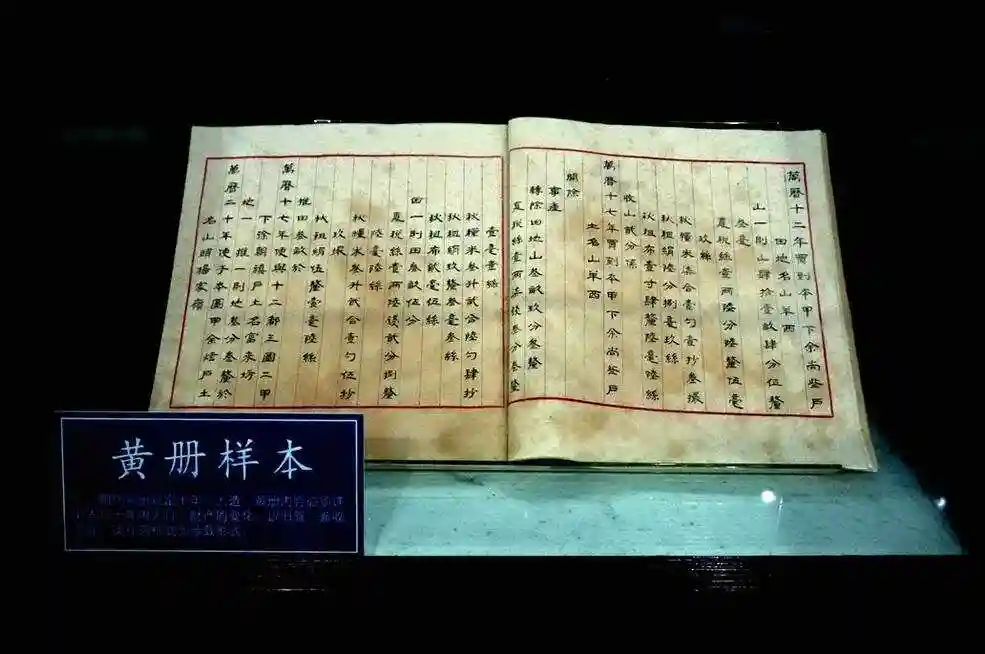 萬曆十二年買到本甲下余尚賢戶
田地名山羊西
山一則山肆拾壹畝肆分伍釐
叁毫
夏稅絲壹兩陸分陸釐伍毫
玖絲
秋糧米柒合壹勺壹抄叁撮
秋租絹陸分捌毫玖絲
秋租布壹寸肆釐陸毫陸絲
收山貳分
萬曆十七年買到本甲下余尚賢戶
土名山羊西
開除
事產
轉除田地山叁畝玖分叁釐
夏稅絲壹兩柒錢叁分叁釐
壹毫壹絲
秋糧米叁升貳合陸勺肆抄
秋租絹玖釐叁毫叁絲
秋租布貳毫伍絲
田一則田叁畝伍分
夏稅絲壹兩陸錢貳分捌釐
陸毫陸絲
秋糧米叁升貳合壹勺伍抄
玖撮
秋租絹伍釐壹毫陸絲
推田叁畝於
萬曆十七年使與十二都三圖二甲
下徐朝綉戶土名富來坊
地一 推一則地叁分叁釐於
萬曆二十年使于本圖甲余焙戶土
名山頭楊家
黄册样本